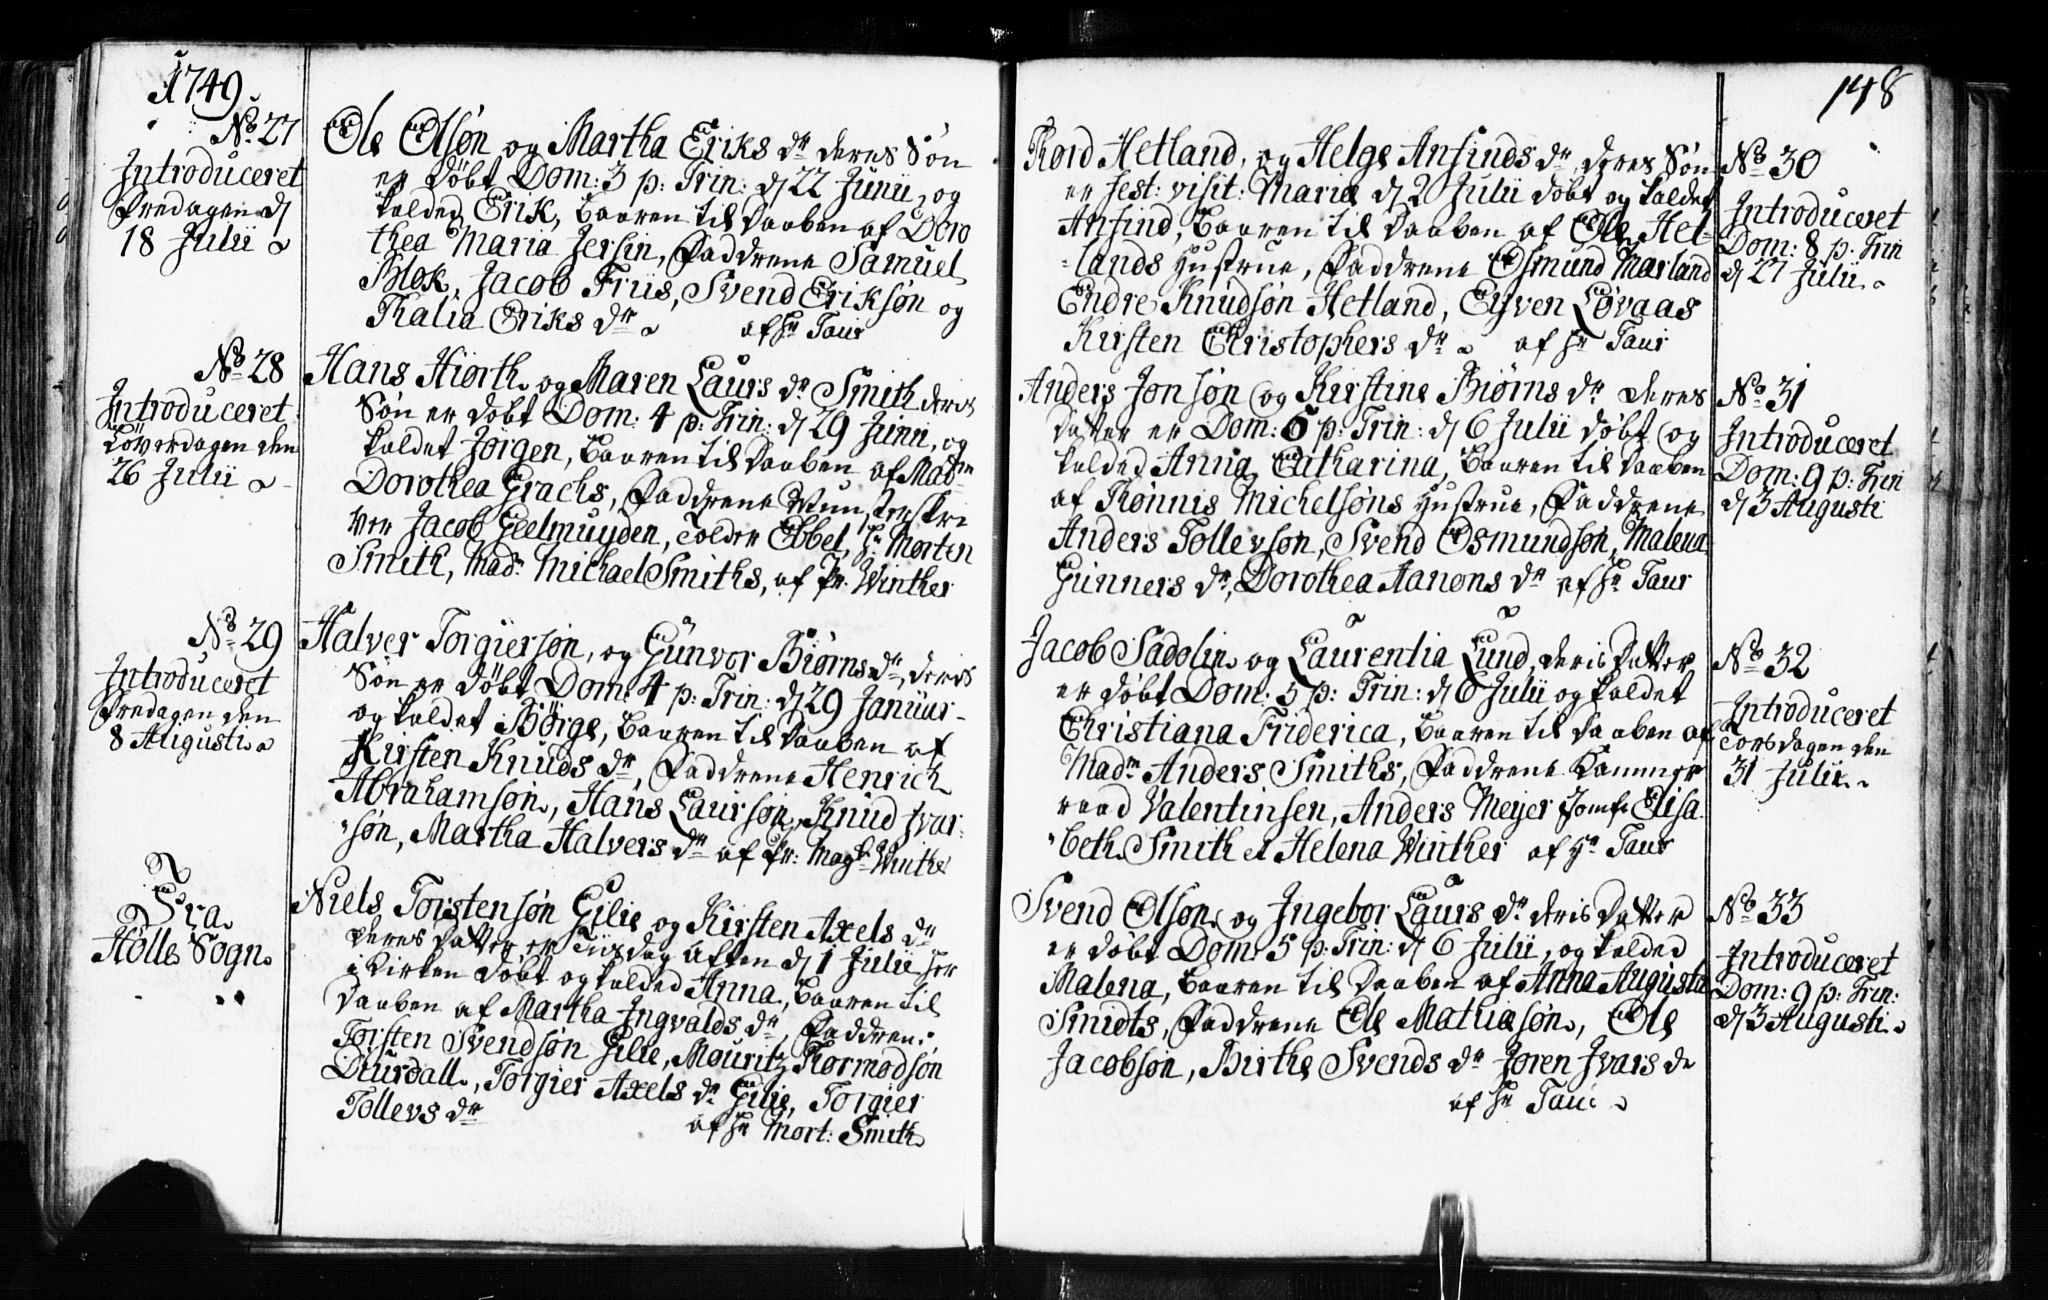 1749
No 27
Introduceret
Fredagen d
18 Julii
Ole Olsøn og Martha Eriks dr deres Søn
er døbt Dom: 3 p: Trin: d 22 Junii, og
kalded Erik, baaren til daaben af Doro
thea Maria Jersin, Faddrene Samuel
Blok, Jacob Friis, Svend Eriksøn og
Thalia Eriks dr af Hr Taur
No 28
Introduceret
Løverdagen den
26 Julii
Hans Hiørth og Maren Laurs dr Smith deris
Søn er døbt Dom: 4 p: Trin: d 29 Junii, og
kaldet Jørgen, baaren til daaben af Madm
Dorothea Grachs, Faddrene Munsterskri
ver Jacob Geelmuyden, Tolder Ebbel, Hr Morten
Smith, Madm Michael Smiths, af Pr: Winther
No 29
Introduceret
Fredagen den
8 Augusti
Halver Torgiersøn, og Gunvor Biørns dr, deris
Søn er døbt Dom: 4 p: Trin: d 29 Januar
og kaldet Børge, baaren til daaben af
Kirsten Knuds dr, Faddrene Henrich
Abrahamsøn, Hans Laursøn, Knud Ivar
søn, Martha Halvers dr af Pr: Magr Winthe
Fra
Holle Sogn
Niels Torstensøn Gilie og Kirsten Axels dr
deres datter er Tiisdag aften d 1 Julii her
i Kirken døbt og kalded Anna, baaren til
daaben af Martha Ingvalds dr, Faddren:
Torsten Svendsøn Gilie, Mouritz Thormodsøn
Diurdall, Torgier Axels dr Gilie, Torgier
Tollevs dr af Hr Mort: Smith
148
Thord Hetland, og Helge Ansinds dr, deres Søn
er fest: visit: Mariæ d 2 Julii døbt og kaldet
Ansind, baaren til daaben af Ole Het-
lands Hustrue, Faddrene Osmund Marland
Endre Knudsøn Hetland, Eyven Løvaas
Kirsten Christophers dr af Hr Taur
No 30
Introduceret
Dom: 8 p: Trin
d 27 Julii
Anders Jonsøn og Kirstine Biørns dr deres
datter er Dom: 5 p: Trin: d 6 Julii døbt og
kaldet Anna Catharina, baaren til daaben
af Thønnis Michelsøns Hustrue, Faddrene
Anders Tollevsøn, Svend Osmundsøn, Malena
Gunners dr, Dorothea Aanons dr af Hr Taur
No 31
Introduceret
Dom: 9 p: Trin
d 3 Augusti
Jacob Sadolin og Laurentia Lund, deris datter
er døbt Dom: 5 p: Trin: d 6 Julii og kaldet
Christiana Friderica, baaren til daaben af
Madm Anders Smiths, Faddrene Kammer
raad Valentinsen, Anders Meyer Jomfr Elisa
beth Smith et Helena Winther af Hr Taur
No 32
Introduceret
Torsdagen den
31 Julii
Svend Olsøn og Ingebor Laurs dr deris datter
er døbt Dom: 5 p: Trin: d 6 Julii, og kaldet
Malena, baaren til daaben af Anna Augusta
Smidts, Faddrene Ole Mathiesøn, Ole
Jacobsøn, Birthe Svends dr Joren Ivars dr
af Hr Taur
No 33
Introduceret
Dom: 9 p: Trin:
d 3 Augusti